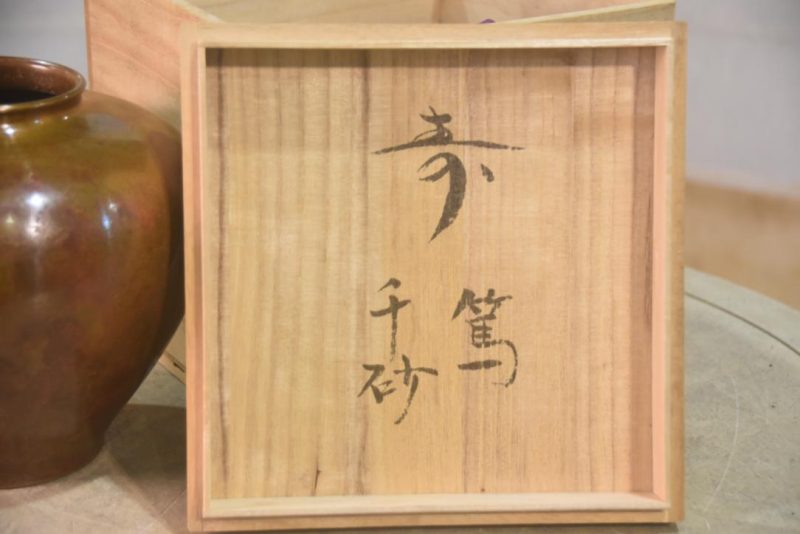 寿
篤
千砂